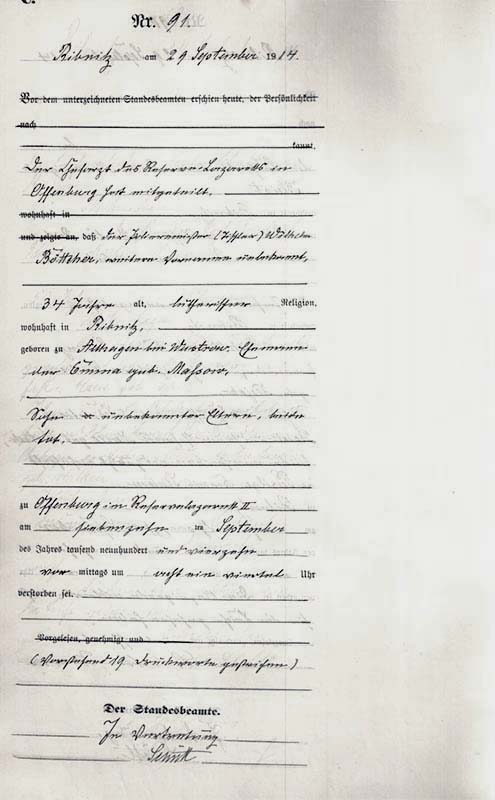 C.
Nr. 91.
Ribnitz am 29 September 1914.
Vor dem unterzeichneten Standesbeamten erschien heute, der Persönlichkeit
nach
kannt,
Der Chefarzt des Reserve-Lazaretts in
Offenburg hat mitgeteilt,
wohnhaft in
und zeigte an, daß der Wilhelm
Böttcher, weitere Vornamen unbekannt,
34 Jahre alt, lutherischer Religion,
wohnhaft in Ribnitz,
geboren zu Althagen bei Wustrow, Ehemann
der Emma geb. Massow,
Sohn unbekannter Eltern, beide
tot.
zu Offenburg im Reservelazarett II
am siebenzehn ten September
des Jahres tausend neunhundert und vierzehn
vor mittags um acht ein viertel Uhr
verstorben sei.
Vorgelesen, genehmigt und
(Vorstehend 19 Druckworte gestrichen)
Der Standesbeamte.
In Vertretung